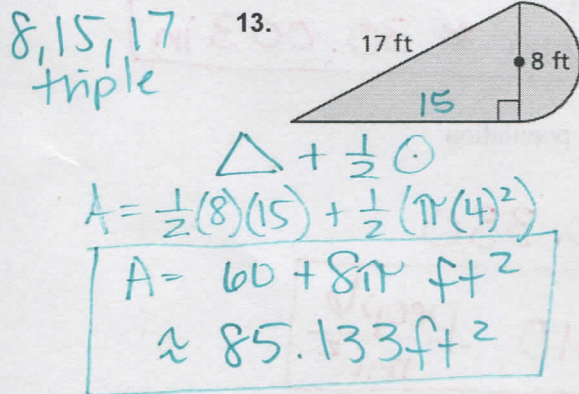 8, 15, 17
triple
13.
17 ft
8 ft
15
△ + ½ ⊙
A = ½(8)(15) + ½(π(4)²)
A = 60 + 8π ft²
≈ 85.133ft²